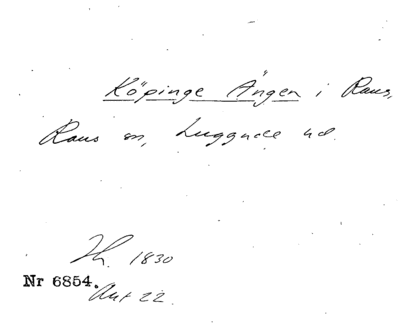 Köpinge Ängen i Raus,
Raus sn, Luggude hd.
Th. 1830
Nr 6854.
Akt 22.